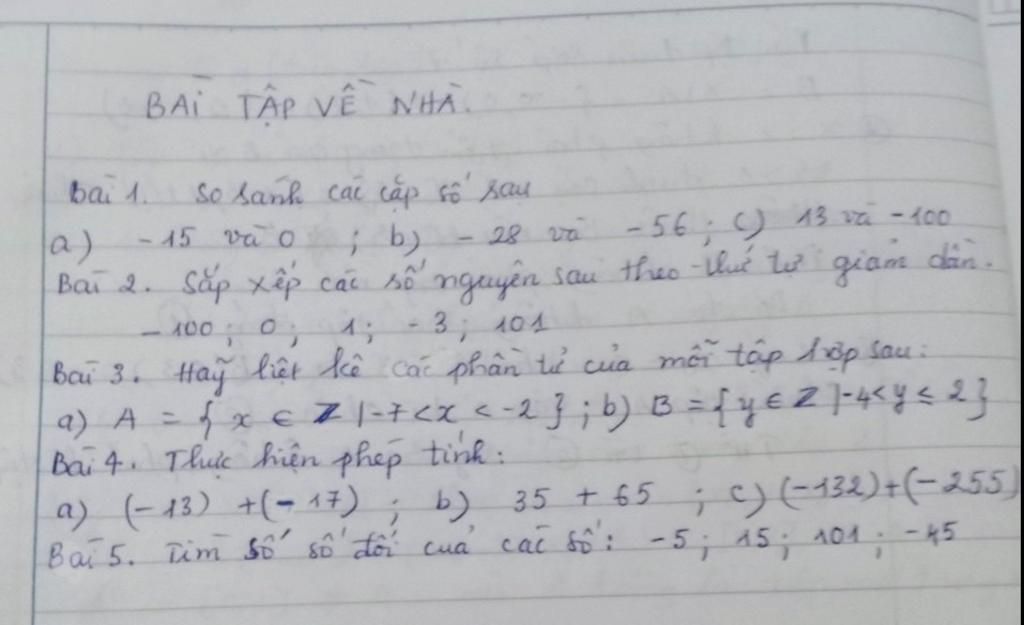 BÀI TẬP VỀ NHÀ.
Bài 1. So sánh các cặp số sau
a) -15 và 0 ; b) - 28 và -56 ; c) 13 và -100
Bài 2. Sắp xếp các số nguyên sau theo thứ tự giảm dần.
-100; 0; 1; -3; 101
Bài 3. Hãy liệt kê các phần tử của mỗi tập hợp sau:
a) A = { x ∈ Z | -7 < x < -2 } ; b) B = { y ∈ Z | -4 < y ≤ 2 }
Bài 4. Thực hiện phép tính:
a) (-13) + (-17) ; b) 35 + 65 ; c) (-132) + (-255)
Bài 5. Tìm số số đối của các số: -5 ; 15 ; 101 ; -45